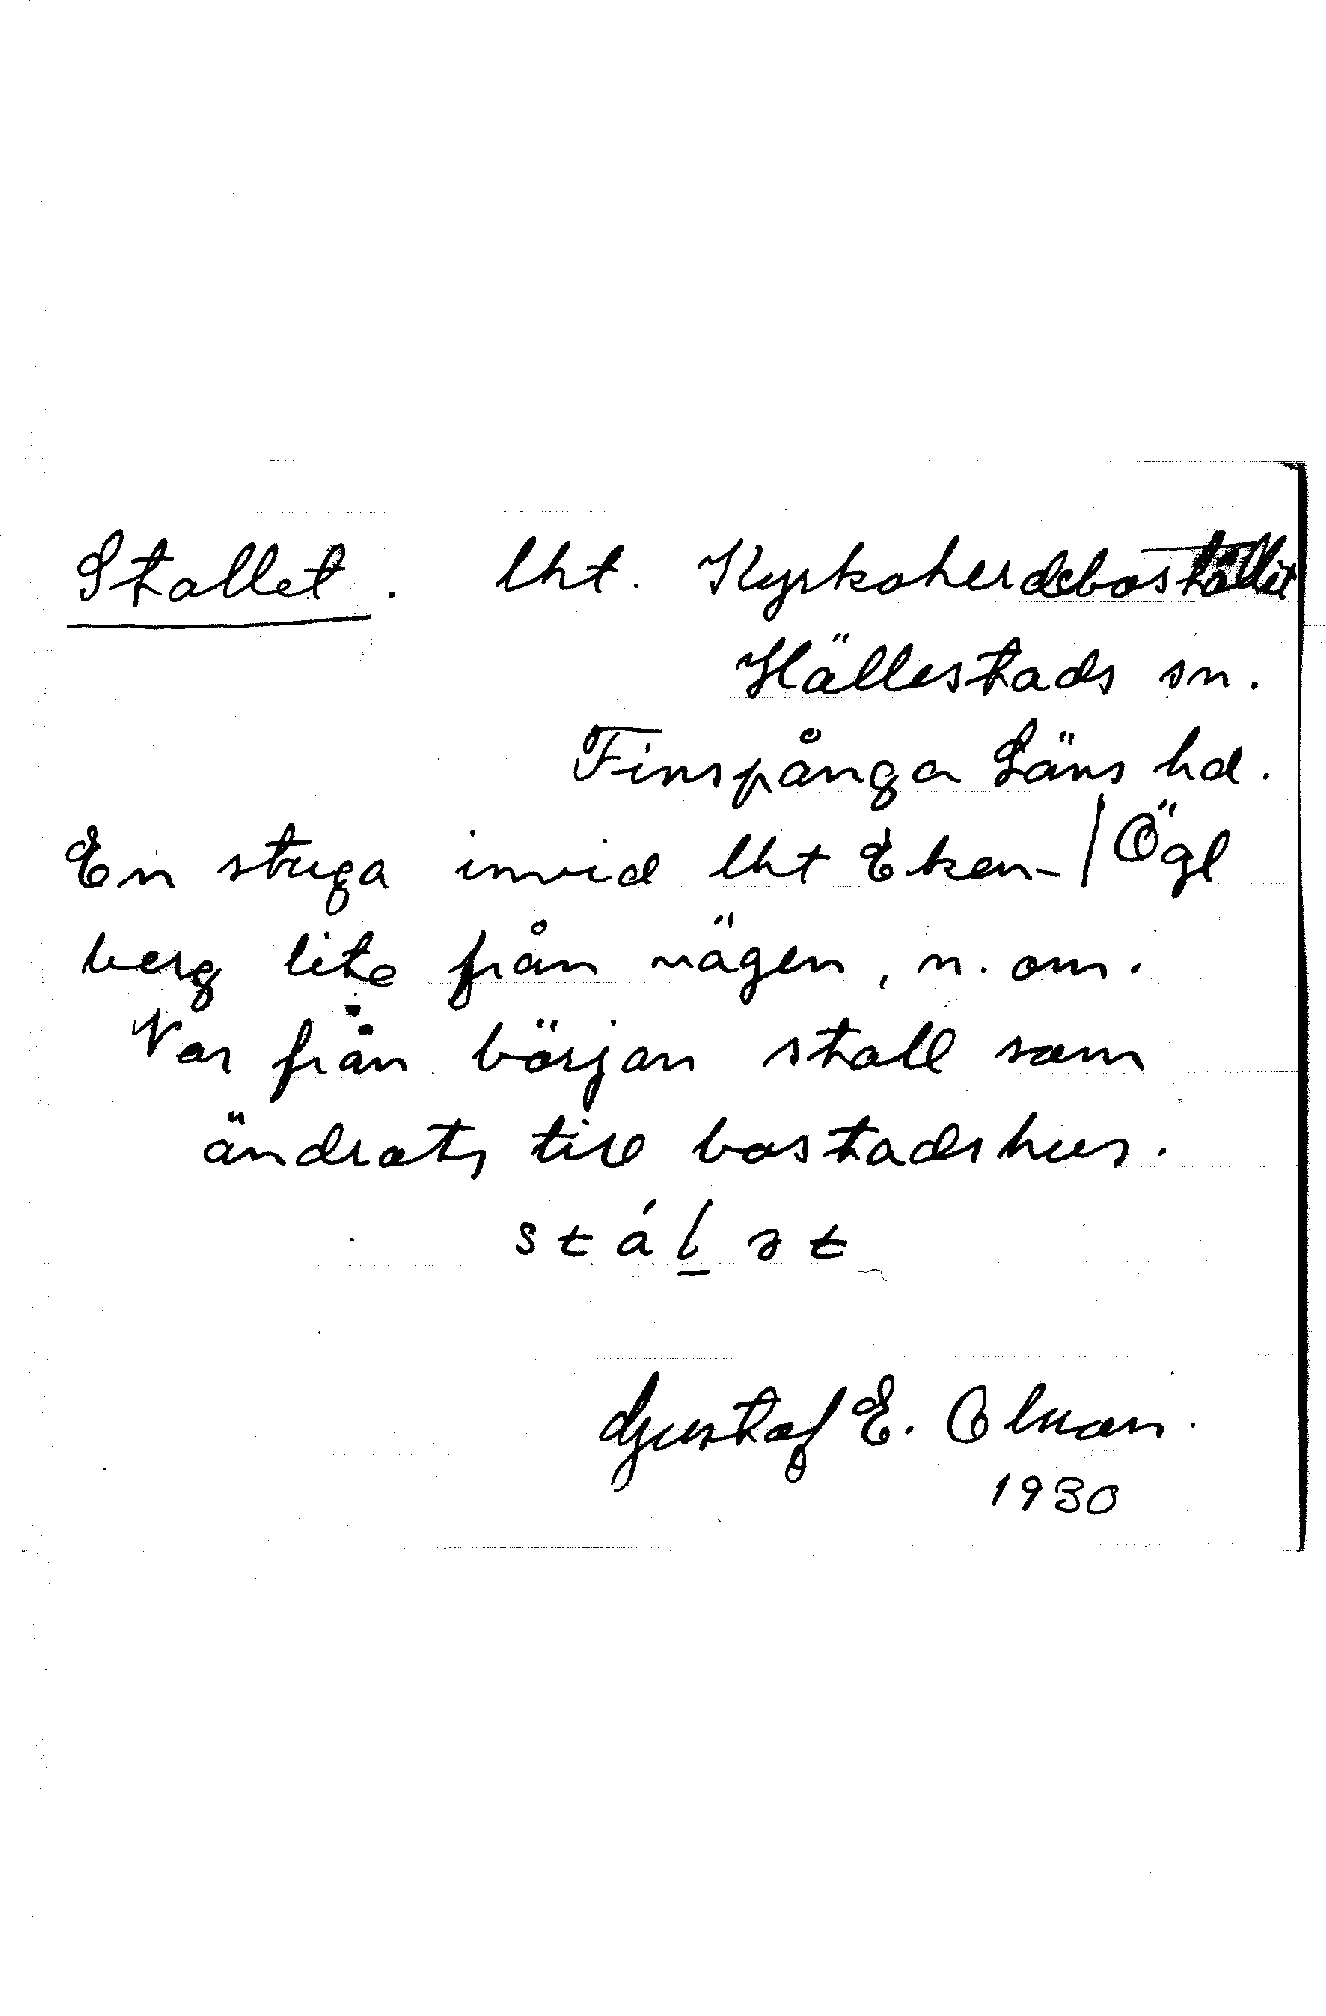 Stallet. lht. Kyrkoherdebostället
Hällestads sn.
Finspånga Läns hd.
En stuga invid lht Eken- / Ögl
berg lite från vägen, n. om.
Var från början stall som
ändrats till bostadshus.
stálət
Gustaf E. Olman.
1930